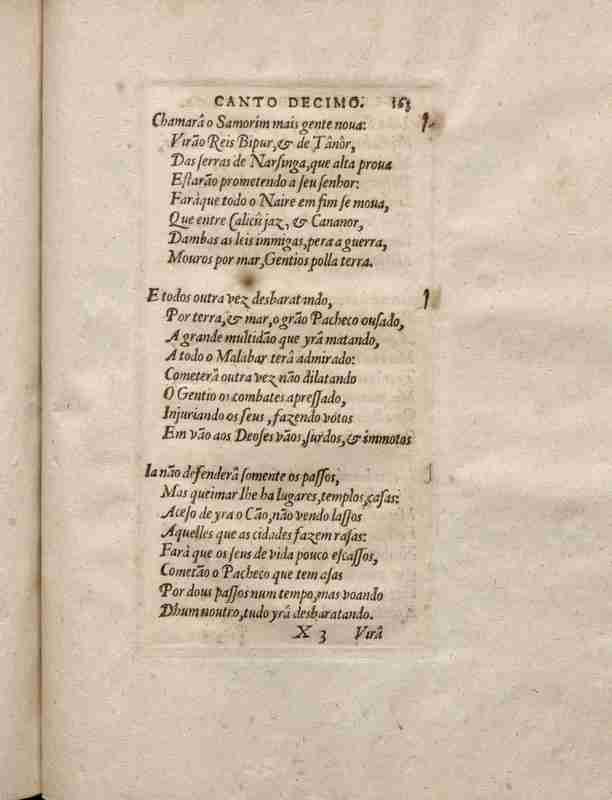 CANTO DECIMO. 163
Chamarâ o Samorim mais gente noua:
Virão Reis Bipur, & de Tânôr,
Das serras de Narsinga, que alta proua
Estarão prometendo a seu senhor:
Farà que todo o Naire em fim se moua,
Que entre Calicû jaz, & Cananor,
Dambas as leis immigas, pera a guerra,
Mouros por mar, Gentios polla terra.
E todos outra vez desbaratando,
Por terra, & mar, o grão Pacheco ousado,
A grande multidão que yrâ matando,
A todo o Malabar terâ admirado:
Cometerâ outra vez não dilatando
O Gentio os combates apressado,
Injuriando os seus, fazendo votos
Em vão aos Deoses vãos, surdos, & immotos
Ia não defenderâ somente os passos,
Mas queimar lhe ha lugares, templos, casas:
Aceso de yra o Cão, não vendo lassos
Aquelles que as cidades fazem rasas:
Farà que os seus de vida pouco escassos,
Cometão o Pacheco que tem asas
Por dous passos num tempo, mas voando
Dhum noutro, tudo yrâ desbaratando.
X 3 Virâ